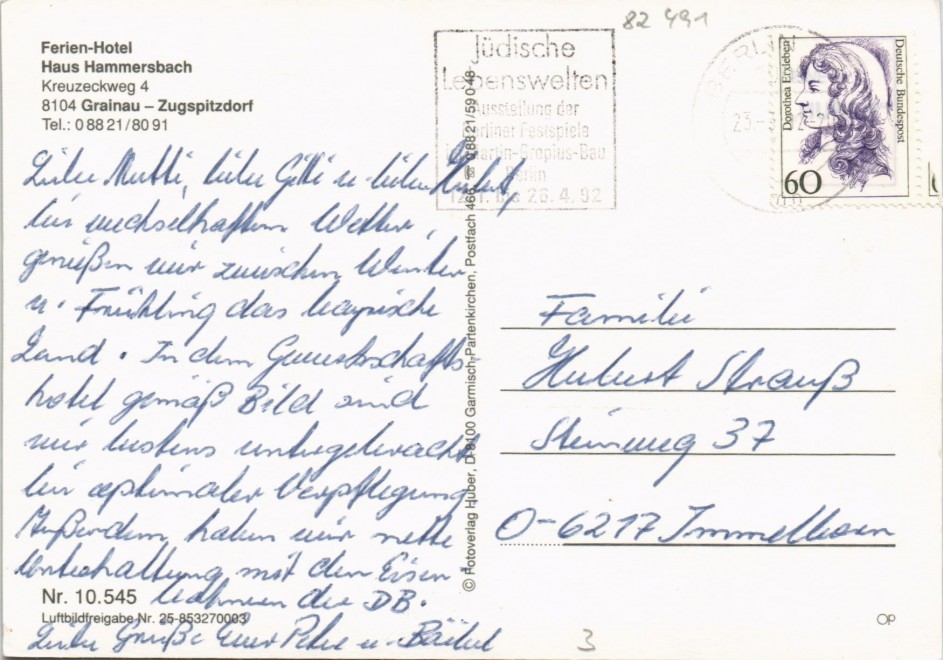 82 491
Ferien-Hotel
Haus Hammersbach
Kreuzeckweg 4
8104 Grainau – Zugspitzdorf
Tel.: 0 88 21/80 91
Jüdische
Lebenswelten
Ausstellung der
Berliner Festspiele
Martin-Gropius-Bau
Berlin
12.1. bis 26.4.92
BERLIN
23.-
Dorothea Erxleben
Deutsche Bundespost
60
Liebe Mutti, liebe Gitti u. lieber Hubert,
bei wechselhaftem Wetter,
genießen wir zwischen Winter
u. Frühling das bayrische
Land. In dem Gewerkschafts-
hotel gemäß Bild sind
wir bestens untergebracht
bei optimaler Verpflegung
Außerdem haben wir nette
Unterhaltung mit den Eisen-
bahnern der DB.
Liebe Grüße Euer Peter u. Bärbel
Nr. 10.545
Luftbildfreigabe Nr. 25-853270003
© Fotoverlag Huber, D-8100 Garmisch-Partenkirchen, Postfach 466, ☏ 0 88 21/59 0 48
Familie
Hubert Strauß
Steinweg 37
O-6217 Immelborn
3
OP